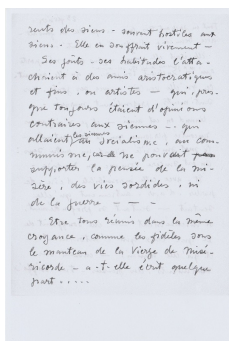 sents des siens - souvent hostiles aux
siens. Elle en souffrait vivement -
Ses goûts - ses habitudes l'atta-
chaient à des amis aristocratiques
et fins, ou artistes - qui, pres-
que toujours étaient d'opinions
contraires aux siennes - qui
allaient les siennes au socialisme, au com-
munisme, car ne pouvait
supporter la pensée de la mi-
sère, des vies sordides, ni
de la guerre - - -
Etre tous réunis dans la même
croyance, comme les fidèles sous
le manteau de la Vierge de Misé-
ricorde - a-t-elle écrit quelque
part.....